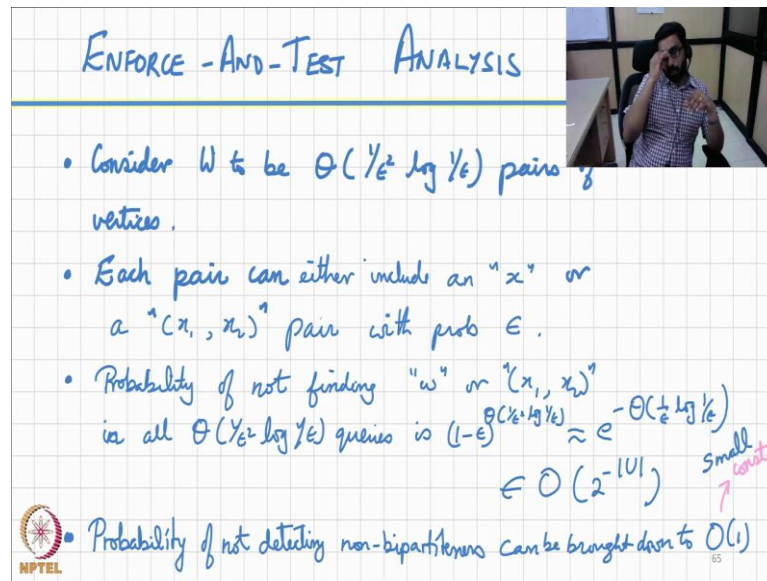 ENFORCE-AND-TEST ANALYSIS
• Consider W to be Θ(1/ε² log 1/ε) pairs of
vertices.
• Each pair can either include an "x" or
a "(x₁, x₂)" pair with prob ε.
• Probability of not finding "w" or "(x₁, x₂)"
in all Θ(1/ε² log 1/ε) queries is (1-ε)^Θ(1/ε² log 1/ε) ≈ e^-Θ(1/ε log 1/ε)
∈ O(2^-|U|)
small
const
• Probability of not detecting non-bipartiteness can be brought down to O(1)
65
NPTEL